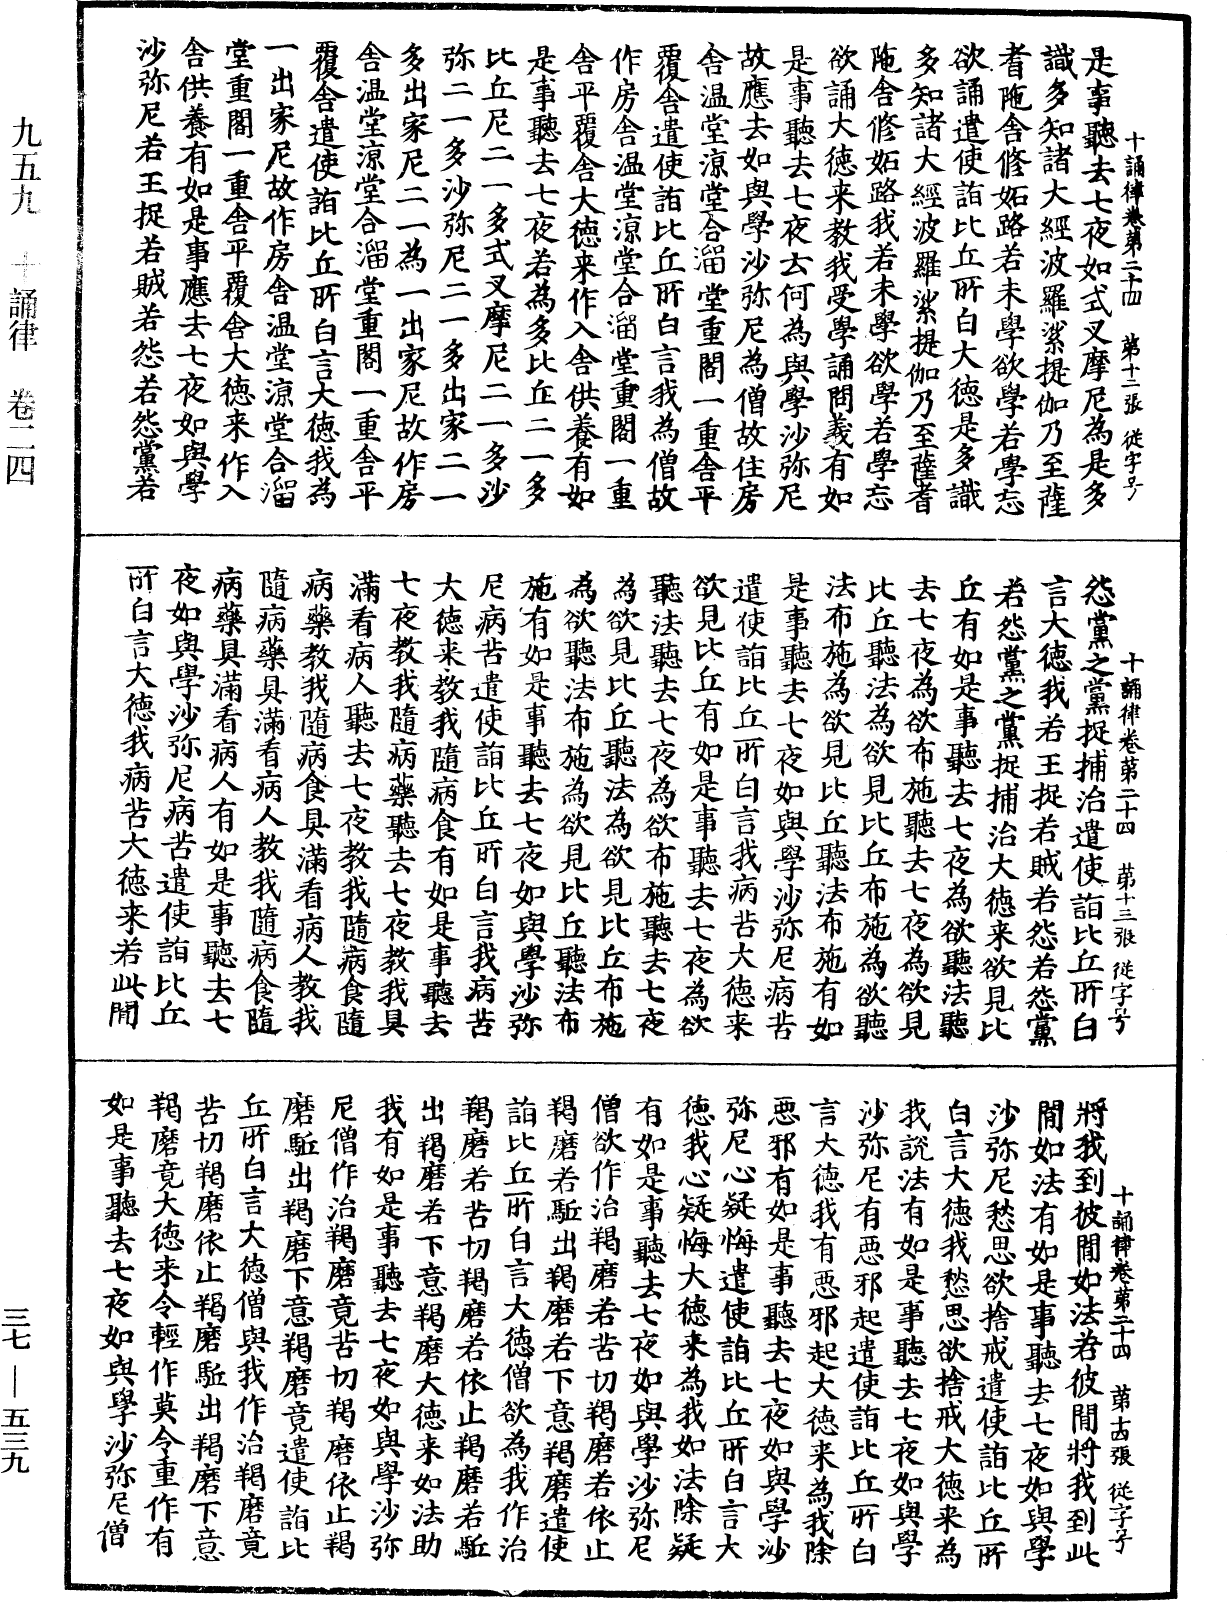 十誦律卷第二十四 第十二張 從字号
是事聽去七夜如式叉摩尼為是多
識多知諸大經波羅㲚提伽乃至薩
耆陁舍修妬路若未學欲學若學忘
欲誦遣使詣比丘所白大徳是多識
多知諸大經波羅㲚提伽乃至薩耆
陁舍修妬路我若未學欲學若學忘
欲誦大徳来教我受學誦問義有如
是事聽去七夜云何為與學沙弥尼
故應去如與學沙弥尼為僧故住房
舍温堂涼堂合溜堂重閣一重舎平
覆舍遣使詣比丘所白言我為僧故
作房舍温堂涼堂合溜堂重閣一重
舍平覆舍大徳来作入舍供養有如
是事聽去七夜若為多比丘二一多
比丘尼二一多式叉摩尼二一多沙
弥二一多沙弥尼二一多出家二一
多出家尼二一為一出家尼故作房
舍温堂涼堂合溜堂重閣一重舍平
覆舍遣使詣比丘所白言大徳我為
一出家尼故作房舍温堂涼堂合溜
堂重閣一重舍平覆舍大徳来作入
舍供養有如是事應去七夜如與學
沙弥尼若王捉若賊若怨若怨黨若
十誦律卷第二十四 第十三張 從字号
怨黨之黨捉捕治遣使詣比丘所白
言大徳我若王捉若賊若怨若怨黨
若怨黨之黨捉捕治大徳来欲見比
丘有如是事聽去七夜為欲聽法聽
去七夜為欲布施聽去七夜為欲見
比丘聽法為欲見比丘布施為欲聽
法布施為欲見比丘聽法布施有如
是事聽去七夜如與學沙弥尼病苦
遣使詣比丘所白言我病苦大徳来
欲見比丘有如是事聽去七夜為欲
聽法聽去七夜為欲布施聽去七夜
為欲見比丘聽法為欲見比丘布施
為欲聽法布施為欲見比丘聽法布
施有如是事聽去七夜如與學沙弥
尼病苦遣使詣比丘所白言我病苦
大徳来教我隨病食有如是事聽去
七夜教我隨病藥聽去七夜教我具
滿看病人聽去七夜教我隨病食隨
病藥教我隨病食具滿看病人教我
隨病藥具滿看病人教我隨病食隨
病藥具滿看病人有如是事聽去七
夜如與學沙弥尼病苦遣使詣比丘
所白言大徳我病苦大徳来若此閒
十誦律卷第二十四 第十四張 從字号
將我到彼閒如法若彼閒將我到此
閒如法有如是事聽去七夜如與學
沙弥尼愁思欲捨戒遣使詣比丘所
白言大徳我愁思欲捨戒大徳来為
我說法有如是事聽去七夜如與學
沙弥尼有惡邪起遣使詣比丘所白
言大徳我有惡邪起大徳来為我除
惡邪有如是事聽去七夜如與學沙
弥尼心疑悔遣使詣比丘所白言大
徳我心疑悔大徳来為我如法除疑
有如是事聽去七夜如與學沙弥尼
僧欲作治羯磨若苦切羯磨若依止
羯磨若駈出羯磨若下意羯磨遣使
詣比丘所白言大徳僧欲為我作治
羯磨若苦切羯磨若依止羯磨若駈
出羯磨若下意羯磨大徳来如法助
我有如是事聽去七夜如與學沙弥
尼僧作治羯磨竟苦切羯磨依止羯
磨駈出羯磨下意羯磨竟遣使詣比
丘所白言大徳僧與我作治羯磨竟
苦切羯磨依止羯磨駈出羯磨下意
羯磨竟大徳来令輕作莫令重作有
如是事聽去七夜如與學沙弥尼僧
九五九 十誦律 卷二四
三七—五三九